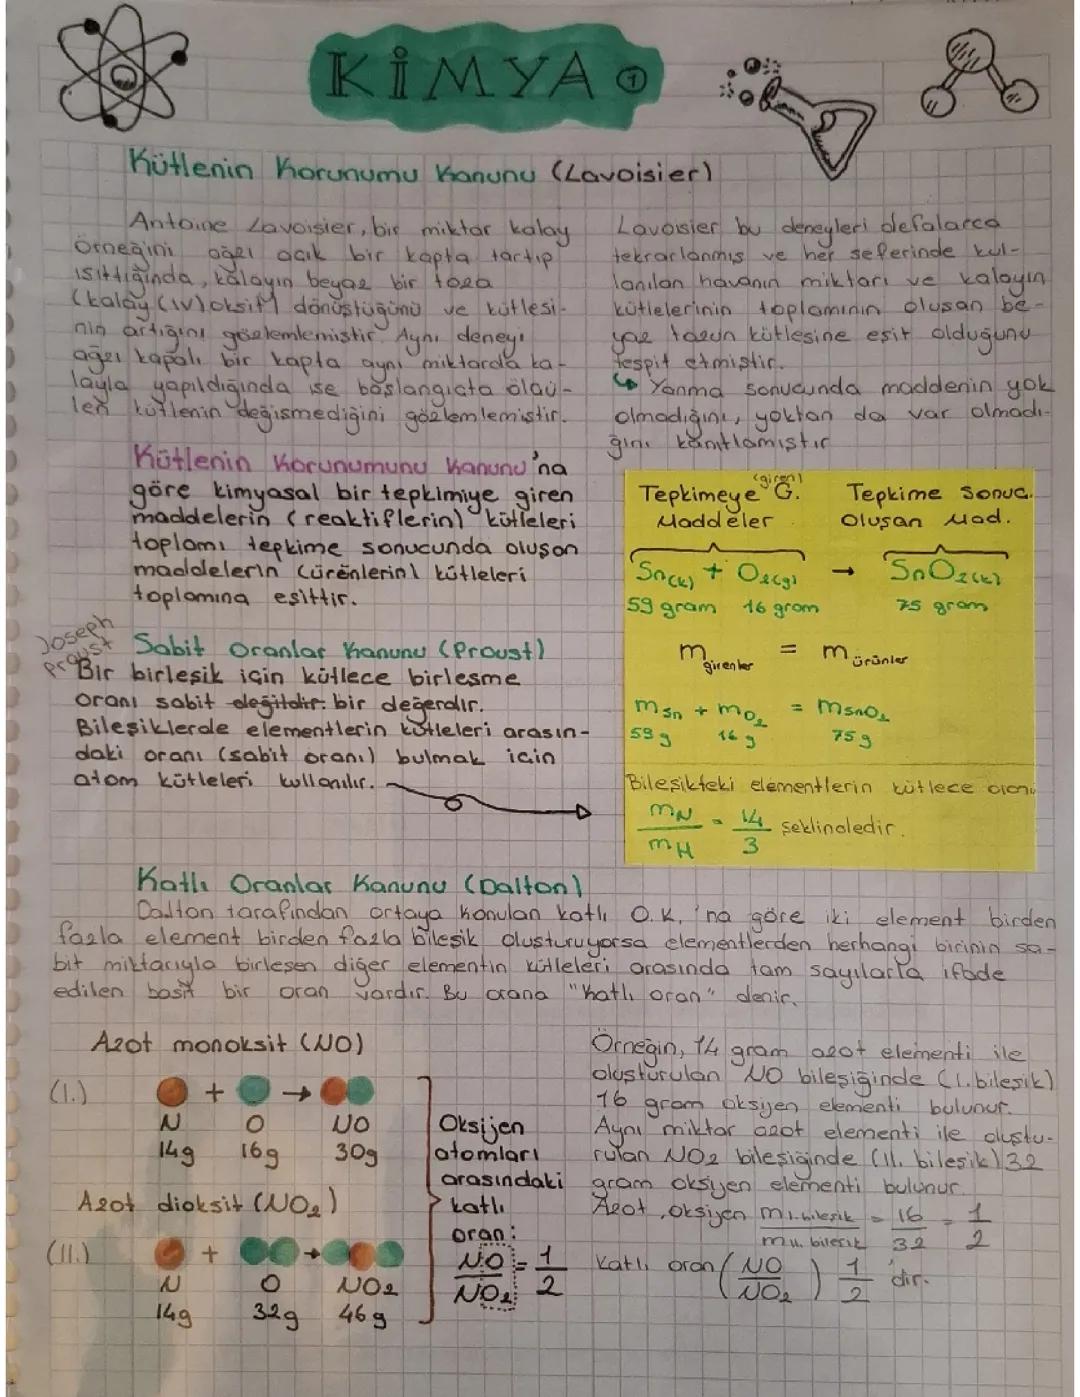 KİMYA 1
Kütlenin Korunumu Kanunu (Lavoisier)
Antoine Lavoisier, bir miktar kalay
Örneğini ağzı açık bir kapta tartıp
ısıttığında, kalayın beyaz bir toza
(kalay (IV) oksit) dönüştüğünü ve kütlesi-
nin artığını gözlemlemiştir. Aynı deneyi
ağzı kapalı bir kapta aynı miktarda ka-
layla yapıldığında ise başlangıçta ölçü-
len kütlenin değişmediğini gözlemlemiştir.
Lavoisier bu deneyleri defalarca
tekrarlanmış ve her seferinde kul-
lanılan havanın miktarı ve kalayın
kütlelerinin toplamının oluşan be-
yaz tozun kütlesine eşit olduğunu
tespit etmiştir.
↳ Yanma sonucunda maddenin yok
olmadığını, yoktan da var olmadı-
ğını kanıtlamıştır
Kütlenin Korunumunu Kanunu'na
göre kimyasal bir tepkimiye giren
maddelerin (reaktiflerin) kütleleri
toplamı tepkime sonucunda oluşan
maddelerin (ürünlerin) kütleleri
toplamına eşittir.
(giren)
Tepkimeye G. Tepkime Sonuc.
Maddeler Oluşan Mad.
Sn(k) + O2(g) → SnO2(k)
59 gram 16 gram 75 gram
m girenler = m ürünler
mSn + mO2 = mSnO2
59 g 16 g 75 g
Bileşikteki elementlerin kütlece oranı
mN/mH = 14/3 şeklindedir.
Joseph
Proust
Sabit Oranlar Kanunu (Proust)
Bir birleşik için kütlece birleşme
oranı sabit değildir. bir değerdir.
Bileşiklerde elementlerin kütleleri arasın-
daki oranı (sabit oranı) bulmak için
atom kütleleri kullanılır.
Katlı Oranlar Kanunu (Dalton)
Dalton tarafından ortaya konulan katlı O.K.'na göre iki element birden
fazla element birden fazla bileşik oluşturuyorsa elementlerden herhangi birinin sa-
bit miktarıyla birleşen diğer elementin kütleleri arasında tam sayılarla ifade
edilen basit bir oran vardır. Bu orana "katlı oran" denir.
Azot monoksit (NO)
(I.) + →
N O NO
14g 16g 30g
Azot dioksit (NO2)
(II.) + →
N O NO2
14g 32g 46g
Oksijen
atomları
arasındaki
katlı
oran:
NO/NO2 = 1/2
Örneğin, 14 gram azot elementi ile
oluşturulan NO bileşiğinde (I. bileşik)
16 gram oksijen elementi bulunur.
Aynı miktar azot elementi ile oluştu-
rulan NO2 bileşiğinde (II. bileşik) 32
gram oksijen elementi bulunur.
Azot, oksijen mI. bileşik/mII. bileşik = 16/32 = 1/2
Katlı oran (NO/NO2) 1/2 'dir.